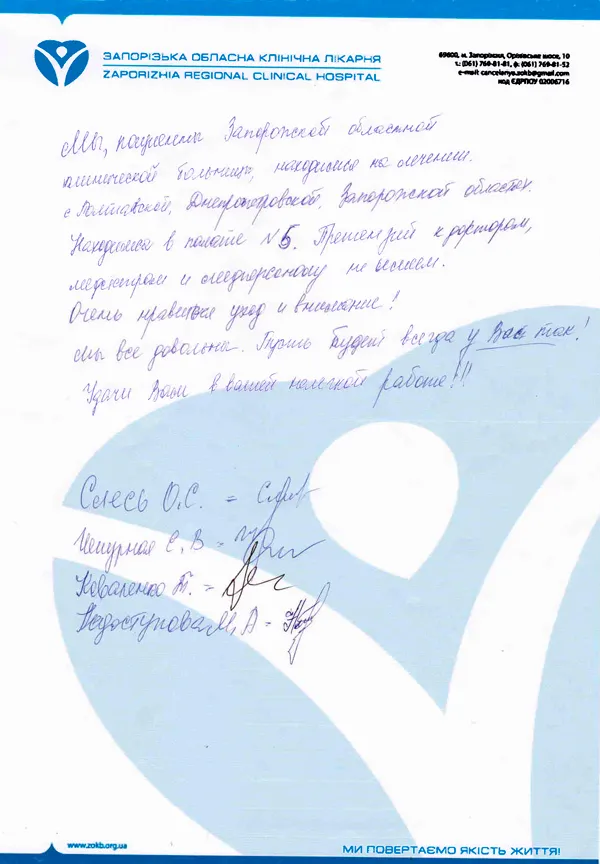 ЗАПОРІЗЬКА ОБЛАСНА КЛІНІЧНА ЛІКАРНЯ
ZAPORIZHIA REGIONAL CLINICAL HOSPITAL
69600, м. Запоріжжя, Оріхівське шосе, 10
т.: (061) 769-81-81, ф: (061) 769-81-52
e-mail: cancelariya.zokb@gmail.com
код ЄДРПОУ 02006716
Мы, пациенты Запорожской областной
клинической больницы, находимся на лечении.
с Полтавской, Днепропетровской, Запорожской областях.
Находимся в палате № 5. Претензий к докторам,
медсестрам и медперсоналу не имеем.
Очень нравится уход и внимание!
Мы все довольны. Пусть будет всегда у Вас так!
Удачи Вам в вашей нелегкой работе!!!
Слесь О.С. =
Чепурная С.В =
Коваленко Т. =
Недоступова М.А =
www.zokb.org.ua
МИ ПОВЕРТАЄМО ЯКІСТЬ ЖИТТЯ!